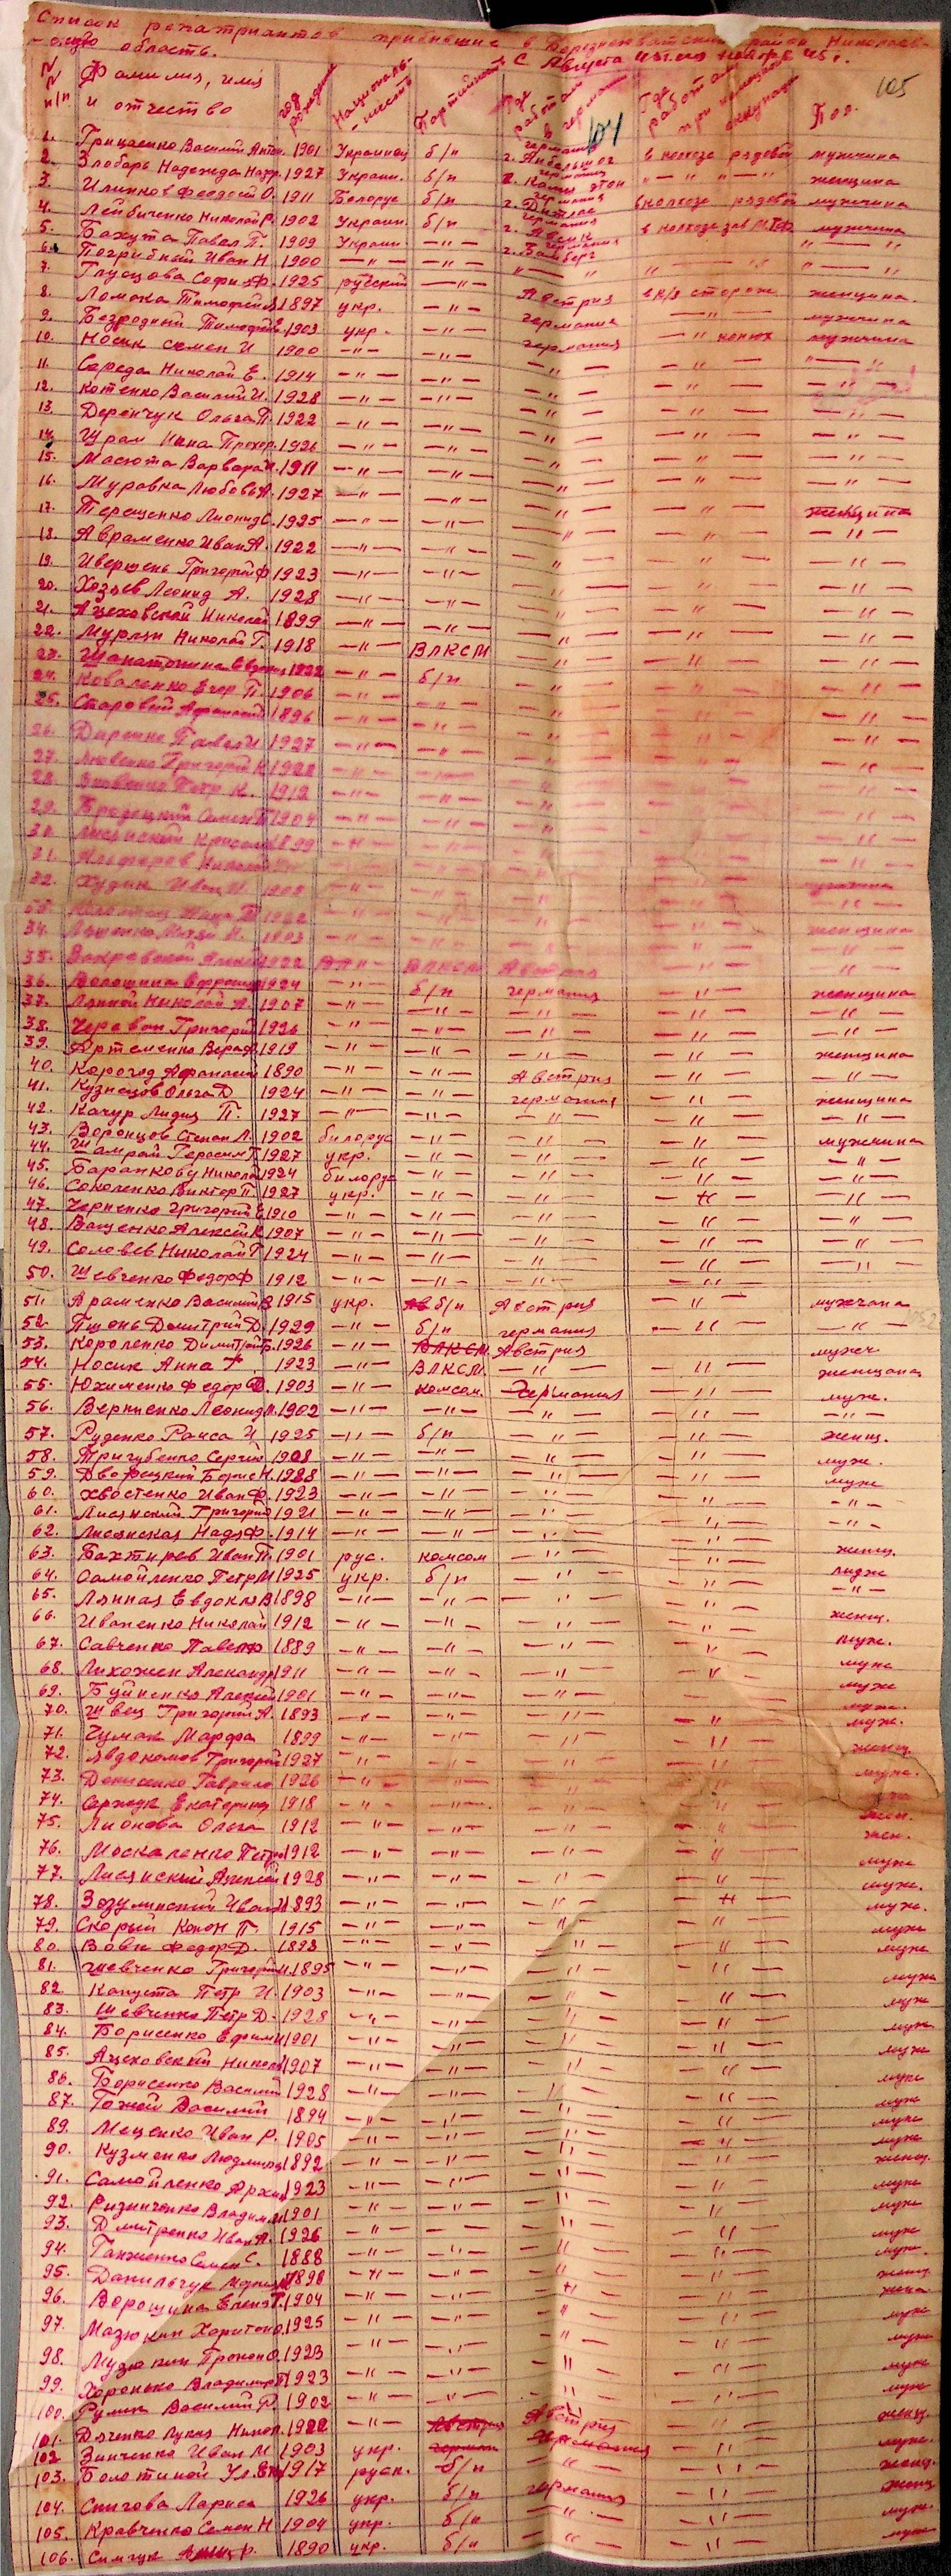 Список репатриантов прибывшие в Березнеговатский район Николаев-
-скую область.
с Августа 45 г. по ноябрь 45 г.
105
104
№№ п/п Фамилия, имя и отчество год рождения Националь-ность Партийность Где работал в германии Где работал при немецкой оккупации Пол.
1. Грицаенко Василий Антон. 1901 Украинец б/п германия в колхозе рядовой мужчина
2. Злобарь Надежда 1927 Украин. б/п германия — " — " — женщина
3. Илинков Феодосий О. 1911 Белорус б/п германия в колхозе рядовой мужчина
4. Лейбиченко Николай Р. 1902 Украин. б/п германия в колхозе зав МТФ мужчина
5. Бахута Павел П. 1909 Украин — " — германия — " —
6. Погрибный Иван Н 1900 — " — — " — г. Бамберг — " —
7. Глусцова Софи Ф. 1925 русский — " — " — " — женщина.
8. Ломака Тимофей 1897 укр. — " — Австрия в к/з сторож мужчина
9. Безродный Тимофей 1903 укр. — " — германия — " — мужчина
10. Носик Семен И 1900 — " — — " — германия — " конюх мужчина
11. Середа Николай Е. 1914 — " — — " — — " — — " — — " —
12. Котенко Василий И. 1928 — " — — " — — " — — " — — " —
13. Деренчук Ольга П. 1922 — " — — " — — " — — " — — " —
14. Щрам Нина Прохор. 1926 — " — — " — — " — — " — — " —
15. Масюта Варвара И. 1911 — " — — " — — " — — " — — " —
16. Муравка Любовь А. 1927 — " — — " — — " — — " — — " —
17. Терещенко Леонид С. 1925 — " — — " — — " — — " — женщина
18. Авраменко Иван А. 1922 — " — — " — — " — — " — — " —
19. Ивершень Григорий Ф 1923 — " — — " — — " — — " — — " —
20. Хозяев Леонид А. 1928 — " — — " — — " — — " — — " —
21. Ацеховской Николай 1899 — " — — " — — " — — " — — " —
22. Мурзин Николай Г. 1918 — " — ВЛКСМ — " — — " — — " —
23. Шапатонина 1922 — " — б/п — " — — " — — " —
24. Коваленко Егор П. 1906 — " — — " — — " — — " — — " —
25. Старовый Афанасий 1896 — " — — " — — " — — " — — " —
26. Диренко Павел И 1927 — " — — " — — " — — " — — " —
27. Григорий 1928 — " — — " — — " — — " — — " —
28. Яковенко Петр К. 1912 — " — — " — — " — — " — — " —
29. Бродецкий Семен 1904 — " — — " — — " — — " — — " —
30. Лисянский 1899 — " — — " — — " — — " — — " —
31. Алферов Николай — " — — " — — " — — " —
32. Худик Иван И. — " — — " — — " — — " — мужчина
33. — " — — " — — " — — " — — " —
34. Ляшенко 1903 — " — — " — — " — — " — женщина
35. 1922 — " — ВЛКСМ Австрия — " — "
36. Волошина Ефросин 1924 — " — б/п германия — " — женщина
37. Лянной Николай А. 1907 — " — — " — — " — — " — — " —
38. Череван Григорий 1926 — " — — " — — " — — " — — " —
39. Артеменко Вера Ф. 1919 — " — — " — — " — — " — женщина
40. Корогод Афанасий 1890 — " — — " — Австрия — " — — " —
41. Кузнецов Ольга Д 1924 — " — — " — германия — " — женщина
42. Качур Лидия П. 1927 — " — — " — — " — — " — — " —
43. Воронцов Степан Л. 1902 билорус — " — — " — — " — мужчина
44. Шамрай Герасим Т 1927 укр. — " — — " — — " — — " —
45. Баранкову Никола 1924 билорус — " — — " — — " — — " —
46. Соколенко Виктор П. 1927 укр. — " — — " — — " — — " —
47. Черненко Григорий Е 1910 — " — — " — — " — — " — — " —
48. Ващенко Алексей К 1907 — " — — " — — " — — " — — " —
49. Соловев Николай Г 1924 — " — — " — — " — — " — — " —
50. Шевченко Федор Ф 1912 — " — — " — — " — — " —
51. Араменко Василий В 1915 укр. б/п Австрия — " — мужчона
52. Пшонь Дмитрий Д 1929 — " — б/п германия — " — — " —
53. Короленко Димитрий Г. 1926 — " — ВЛКСМ. Австрия мужч.
54. Носик Анна Ф 1923 — " — ВЛКСМ. — " — — " — женщона
55. Юхименко Федор Д. 1903 — " — комсом. германия — " — муж.
56. Верниенко Леонид Л. 1902 — " — — " — — " — — " — — " —
57. Руденко Раиса И 1925 — " — б/п — " — — " — женщ.
58. Тригубенко Сергий 1908 — " — — " — — " — — " — муж.
59. Дворецкий Борис Н. 1928 — " — — " — — " — — " — муж
60. Хвостенко Иван Ф. 1923 — " — — " — — " — — " — — " —
61. Лисянский Григорий 1921 — " — — " — — " — — " — — " —
62. Лисянская Надя Ф. 1914 — " — — " — — " — — " — женщ.
63. Бахтирев Иван П. 1901 рус. комсом — " — — " — мудж
64. Самойленко Петр И 1925 укр. б/п — " — — " — — " —
65. Лянная Евдокия В 1898 — " — — " — — " — — " — женщ.
66. Иваненко Николай 1912 — " — — " — — " — — " — муж.
67. Савченко Павел Ф 1889 — " — — " — — " — — " — муж
68. Лихожен Александр 1911 — " — — " — — " — — " — муж
69. Буйненко Алексей 1901 — " — — " — — " — — " — муж.
70. Швец Григорий А. 1893 — " — — " — — " — — " — муж.
71. Чумак Марфа 1899 — " — — " — — " — — " — женщ.
72. Явдокомов Григорий 1927 — " — — " — — " — — " — муж.
73. Денисенко Гаврило 1926 — " — — " — — " — — " — муж
74. Сержук Екатерина 1918 — " — — " — — " — — " — жен.
75. Лионова Ольга 1912 — " — — " — — " — — " — жен.
76. Москаленко Петр 1912 — " — — " — — " — — " — муж
77. Лисянский Алексей 1928 — " — — " — — " — — " — муж.
78. Зозулинский Иван 1893 — " — — " — — " — — " — муж.
79. Скорый Конон П. 1915 — " — — " — — " — — " — муж
80. Вовк Федор Д. 1893 — " — — " — — " — — " — муж
81. Шевченко Григорий 1895 — " — — " — — " — — " — муж
82. Капуста Петр И. 1903 — " — — " — — " — — " — муж
83. Шевченко Петр Д. 1928 — " — — " — — " — — " — муж
84. Борисенко Ефим 1901 — " — — " — — " — — " — муж
85. Ацеховский Никола 1907 — " — — " — — " — — " — муж
86. Борисенко Василий 1928 — " — — " — — " — — " — муж
87. Гожий Василий 1894 — " — — " — — " — — " — муж
89. Меценко Иван Р. 1905 — " — — " — — " — — " — муж
90. Кузменко Людмила 1892 — " — — " — — " — — " — женщ.
91. Самойленко Архип 1923 — " — — " — — " — — " — муж
92. Ризниченко Владим. 1901 — " — — " — — " — — " — муж
93. Дмитренко Иван А. 1926 — " — — " — — " — — " — муж
94. Ганженко Семен С. 1888 — " — — " — — " — — " — муж.
95. Данильчук Мария 1898 — " — — " — — " — — " — женщ.
96. Ворошина Елена Т. 1904 — " — — " — — " — — " — жена
97. Мазюкин Харитон 1925 — " — — " — — " — — " — муж
98. Музюкин Прокоп О. 1923 — " — — " — — " — — " — муж
99. Харонько Владимир П 1923 — " — — " — — " — — " — муж
100. Рулик Василий Ф. 1902 — " — — " — — " — — " — муж
101. Дяченко Лукия Никол. 1922 — " — Австрия Австрия — " — женщ.
102. Зинченко Иван М 1903 укр. герман германия — " — муж.
103. Болотиной Ул. 1917 руск. б/п — " — — " — женщ.
104. Снигова Лариса 1926 укр. б/п германия — " — женщ
105. Кравченко Семен Н 1904 укр. б/п — " — — " — муж.
106. Симчук 1890 укр. б/п — " — — " — муж